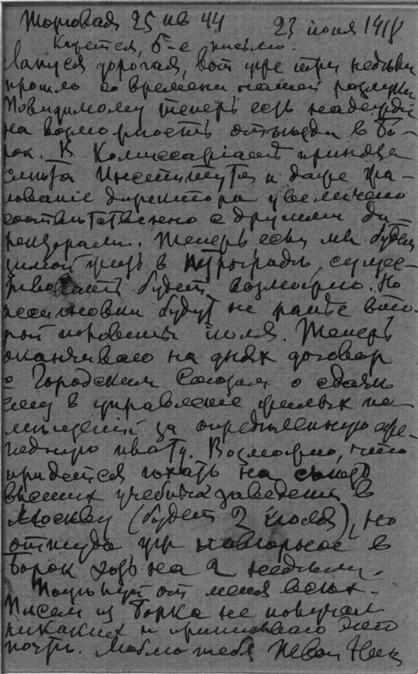 Торговая 25 кв 44 23 июня 1918
Кажется, 5-е письмо.
Лапуся дорогая, вот уже три недели
прошло со времени нашей разлуки
Повидимому теперь есть надежда
на возможность отъезда в Бо-
рок. В Комиссариате принята
смета Института и даже жа-
лование директора увеличено
соответственно с другими ди-
ректорами. Теперь если мы будем
зимой жить в Петрограде, сущес-
твовать будет возможно. Но
будут не ранее вто-
рой половины июля. Теперь
оканчиваю на днях договор
с Городским Союзом о сдаче
ему в управление
за определенную аре-
ндную плату. Возможно, что
придется ехать на съезд
высших учебных заведений в
Москву (будет 2 июля), но
оттуда уж наверное в
Борок хоть на 2 недели.
Поцелуй от меня всех.
Писем из Борка не получал
никаких и приписываю это
почте. Люблю тебя Твой